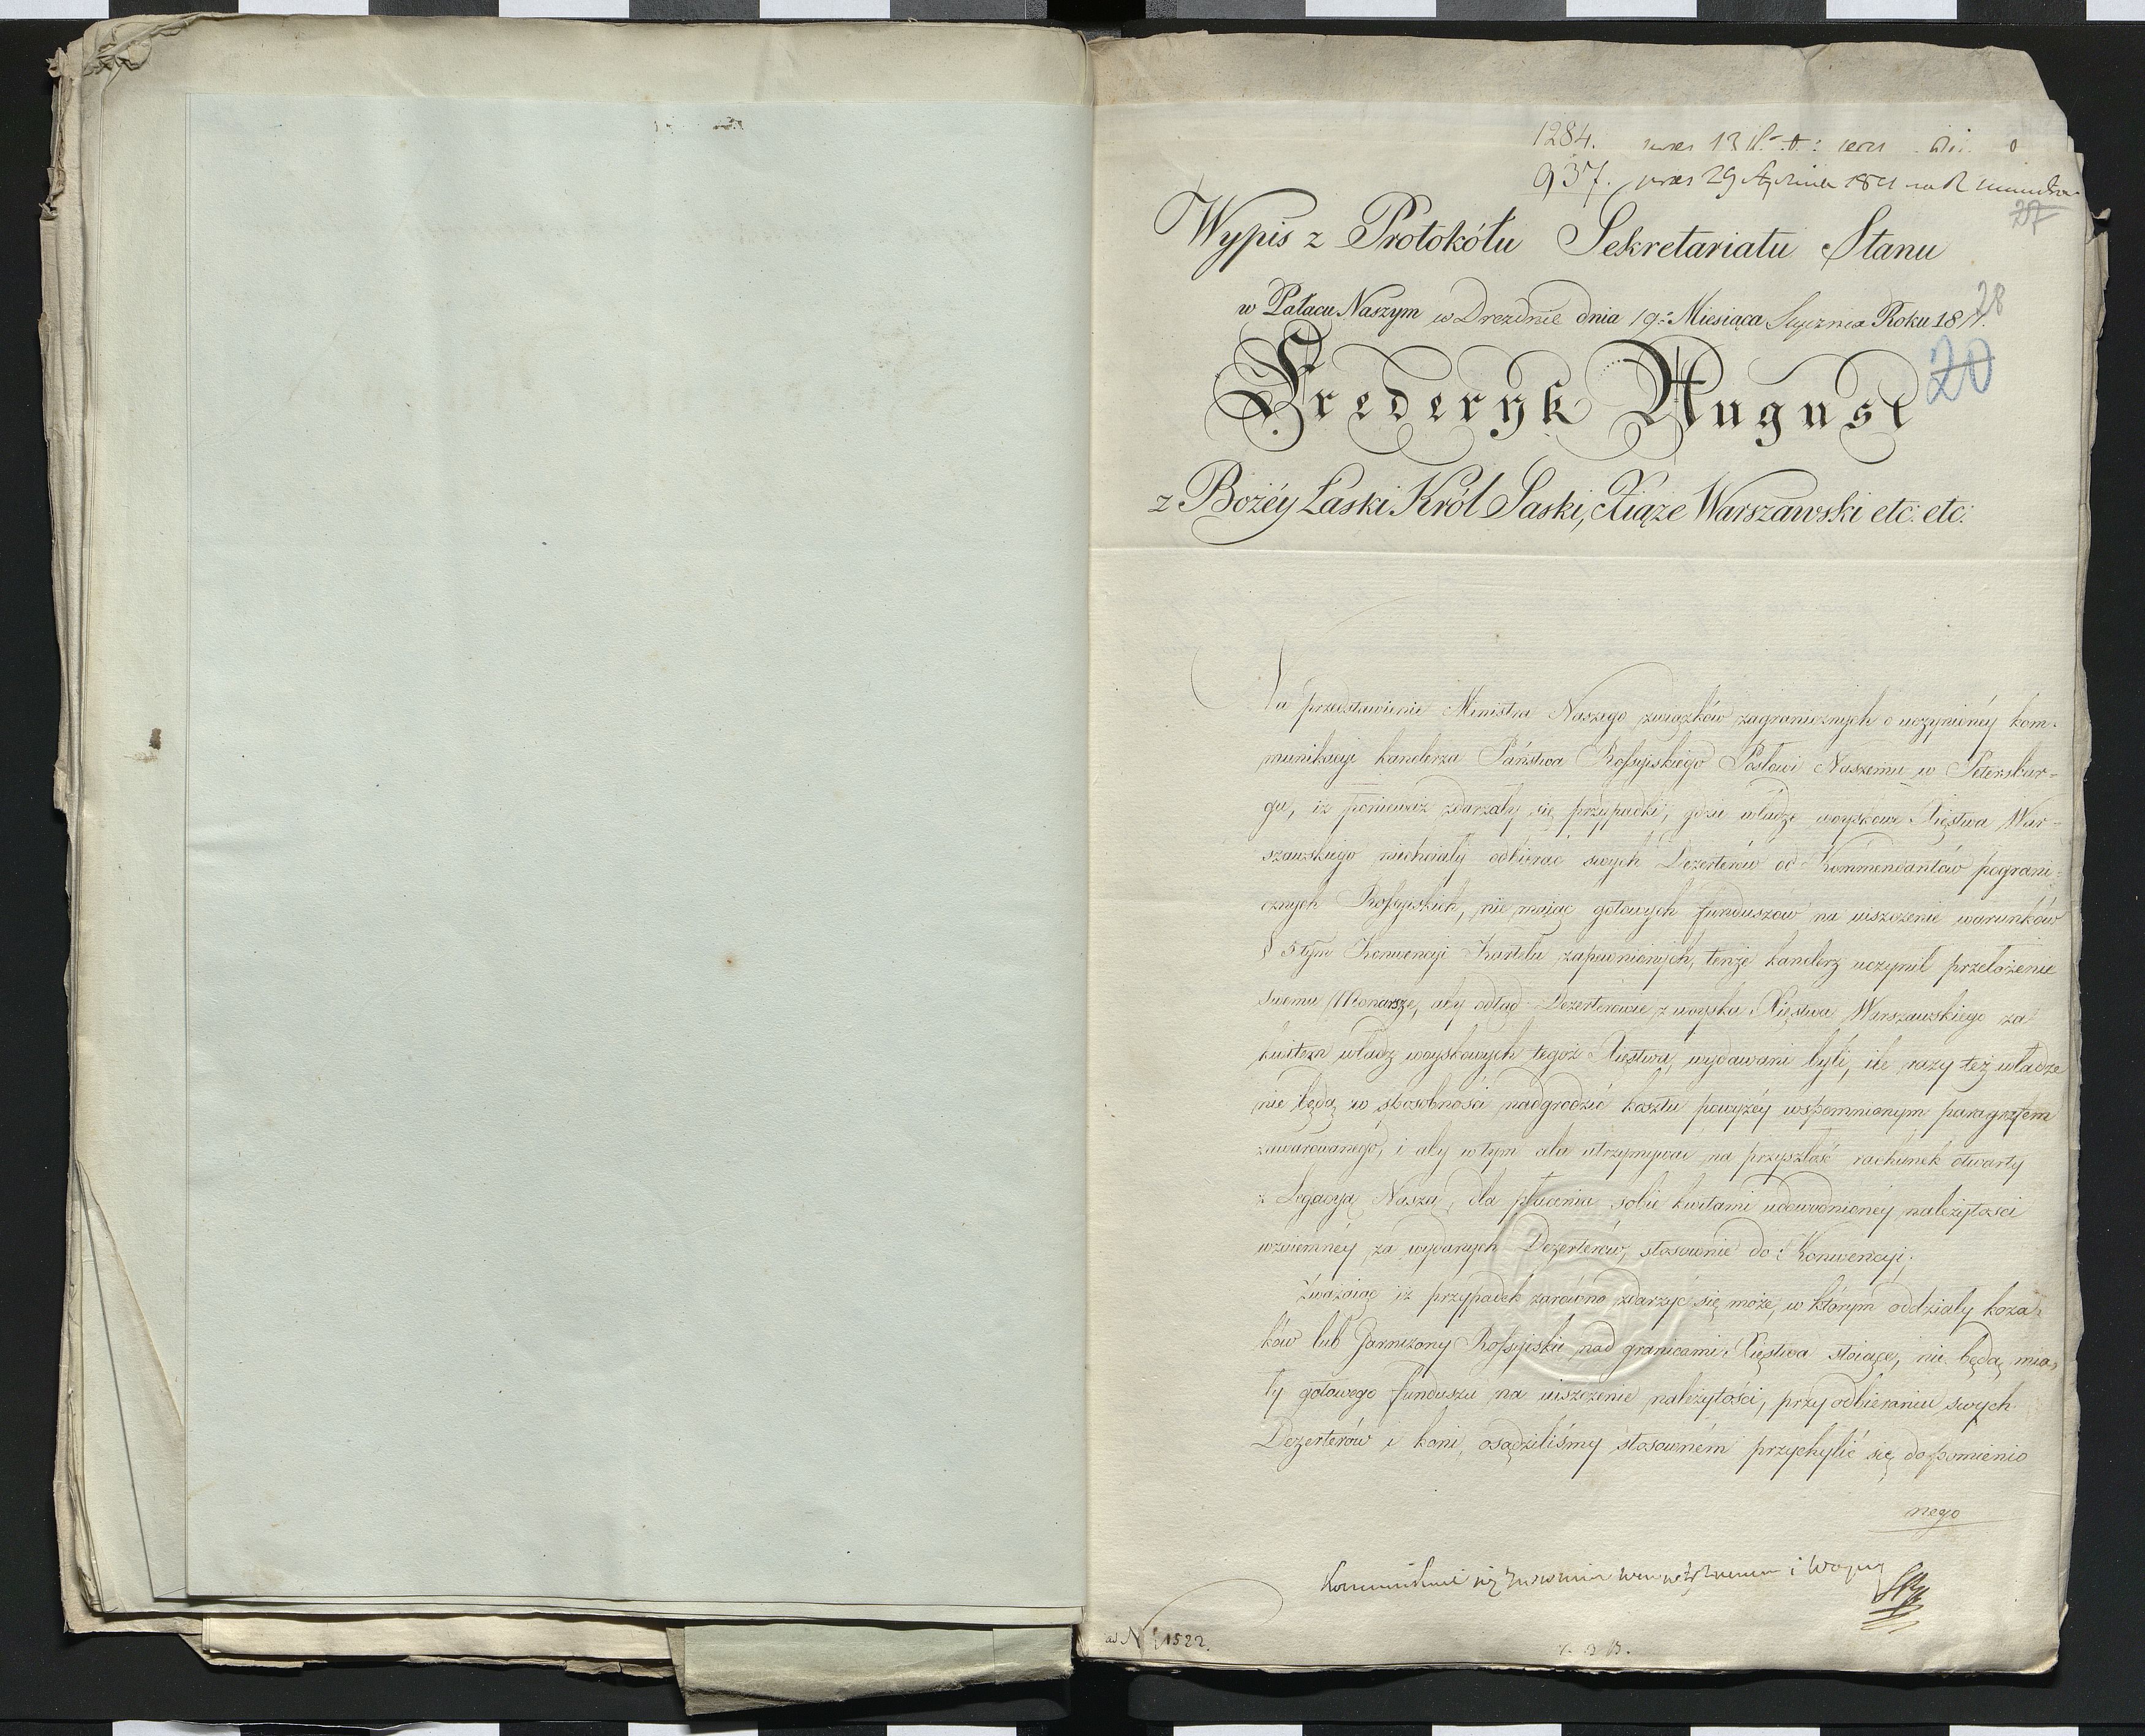 1284.
937.
27
Wypis z Protokółu Sekretariatu Stanu
28
w Pałacu Naszym w Dreźnie dnia 19. Miesiąca Stycznia Roku 1811.
20
Frederyk August
z Bożéy Łaski Król Saski, Xiąże Warszawski etc: etc:
Na przedstawienie Ministra Naszego związków zagranicznych o uczynionéy kom-
munikacyi kanclerza Państwa Rossyiskiego Posłowi Naszemu w Petersbur-
gu, iż ponieważ zdarzały się przypadki, gdzie władze woyskowe Xięstwa War-
szawskiego niechciały odbierać swych Dezerterów od Kommendantów pograni-
cznych Rossyiskich, nie maiąc gotowych funduszów na uiszczenie warunków
§ 5tym Konwencyi Kartelu zapewnionych, tenże kanclerz uczynił przełożenie
swemu Monarsze, aby odtąd Dezerterowie z woyska Xięstwa Warszawskiego za
kwitem władz woyskowych tegoż Xięstwa, wydawani byli, ile razy też władze
nie będą w sposobności nadgrodzić kosztu powyżéy wspomnionym paragrafem
zawarowanego, i aby w tym celu utrzymywać na przyszłość rachunek otwarty
z Legacyą Naszą, dla płacenia sobie kwitami udowodnionéy należytości
wzaiemnéy za wydanych Dezerterów, stosownie do Konwencyi;
Zważaiąc iż przypadek zarówno zdarzyć się może, w którym oddziały koza-
ków lub Garnizony Rossyiskie nad granicami Xięstwa stoiące, nie będą mia-
ły gotowego funduszu na uiszczenie należytości, przy odbieraniu swych
Dezerterów i koni, osądziliśmy stosowném przychylić się do pomienio
nego
i Woyny
ad N 1522.